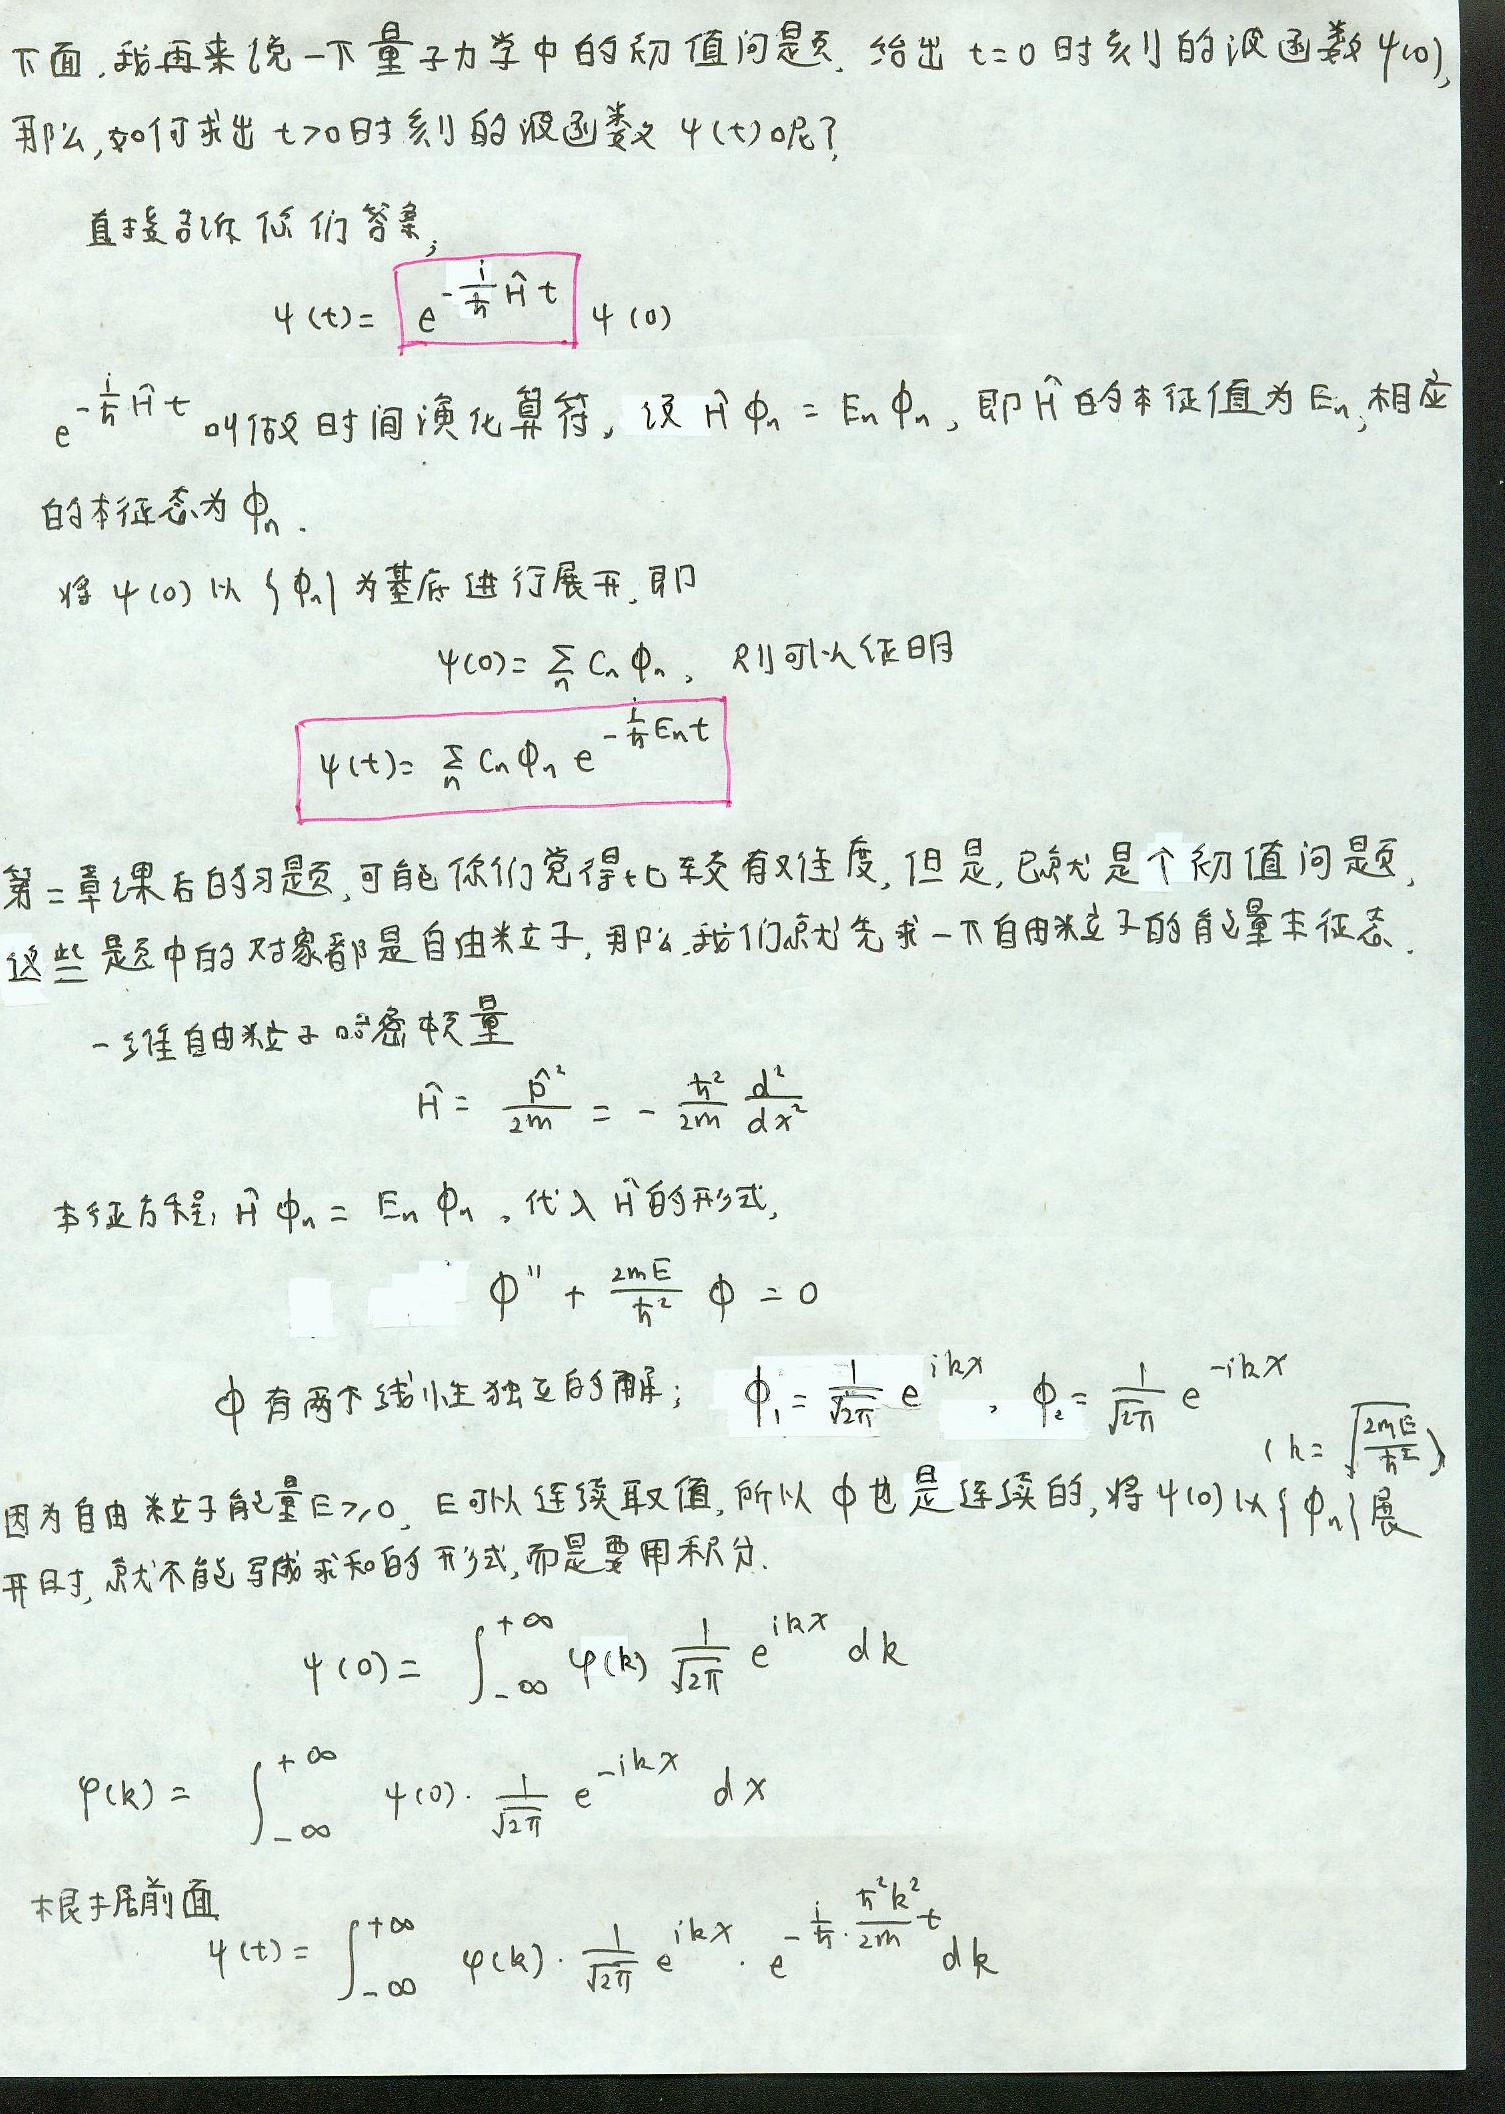 下面,我再来说一下量子力学中的初值问题,给出 t=0时刻的波函数ψ(0),
那么,如何求出 t>0时刻的波函数 ψ(t)呢?
直接告诉你们答案,
ψ(t)= e^{-\frac{i}{ħ}Ĥt} ψ(0)
e^{-\frac{i}{ħ}Ĥt} 叫做时间演化算符,设 Ĥφₙ = Eₙφₙ,即Ĥ的本征值为Eₙ,相应
的本征态为φₙ.
将ψ(0)以{φₙ}为基底进行展开,即
ψ(0)= Σₙ Cₙ φₙ, 则可以证明
ψ(t)= Σₙ Cₙ φₙ e^{-\frac{i}{ħ}Eₙt}
第二章课后的习题,可能你们觉得比较有难度,但是,它就是个初值问题,
这些题中的对象都是自由粒子,那么,我们就先求一下自由粒子的能量本征态.
一维自由粒子哈密顿量
Ĥ = \frac{p̂²}{2m} = -\frac{ħ²}{2m}\frac{d²}{dx²}
本征方程,Ĥφₙ = Eₙφₙ,代入Ĥ的形式,
φ'' + \frac{2mE}{ħ²} φ = 0
φ有两个线性独立的解; φ₁= \frac{1}{\sqrt{2π}} e^{ikx}, φ₂= \frac{1}{\sqrt{2π}} e^{-ikx}
(k= \sqrt{\frac{2mE}{ħ²}})
因为自由粒子能量E≥0,E可以连续取值,所以φ也是连续的,将ψ(0)以{φₙ}展
开时,就不能写成求和的形式,而是要用积分.
ψ(0)= ∫_{-∞}^{+∞} φ(k) \frac{1}{\sqrt{2π}} e^{ikx} dk
φ(k)= ∫_{-∞}^{+∞} ψ(0)·\frac{1}{\sqrt{2π}} e^{-ikx} dx
根据前面
ψ(t)= ∫_{-∞}^{+∞} φ(k)·\frac{1}{\sqrt{2π}} e^{ikx}·e^{-\frac{i}{ħ}·\frac{ħ²k²}{2m}t} dk